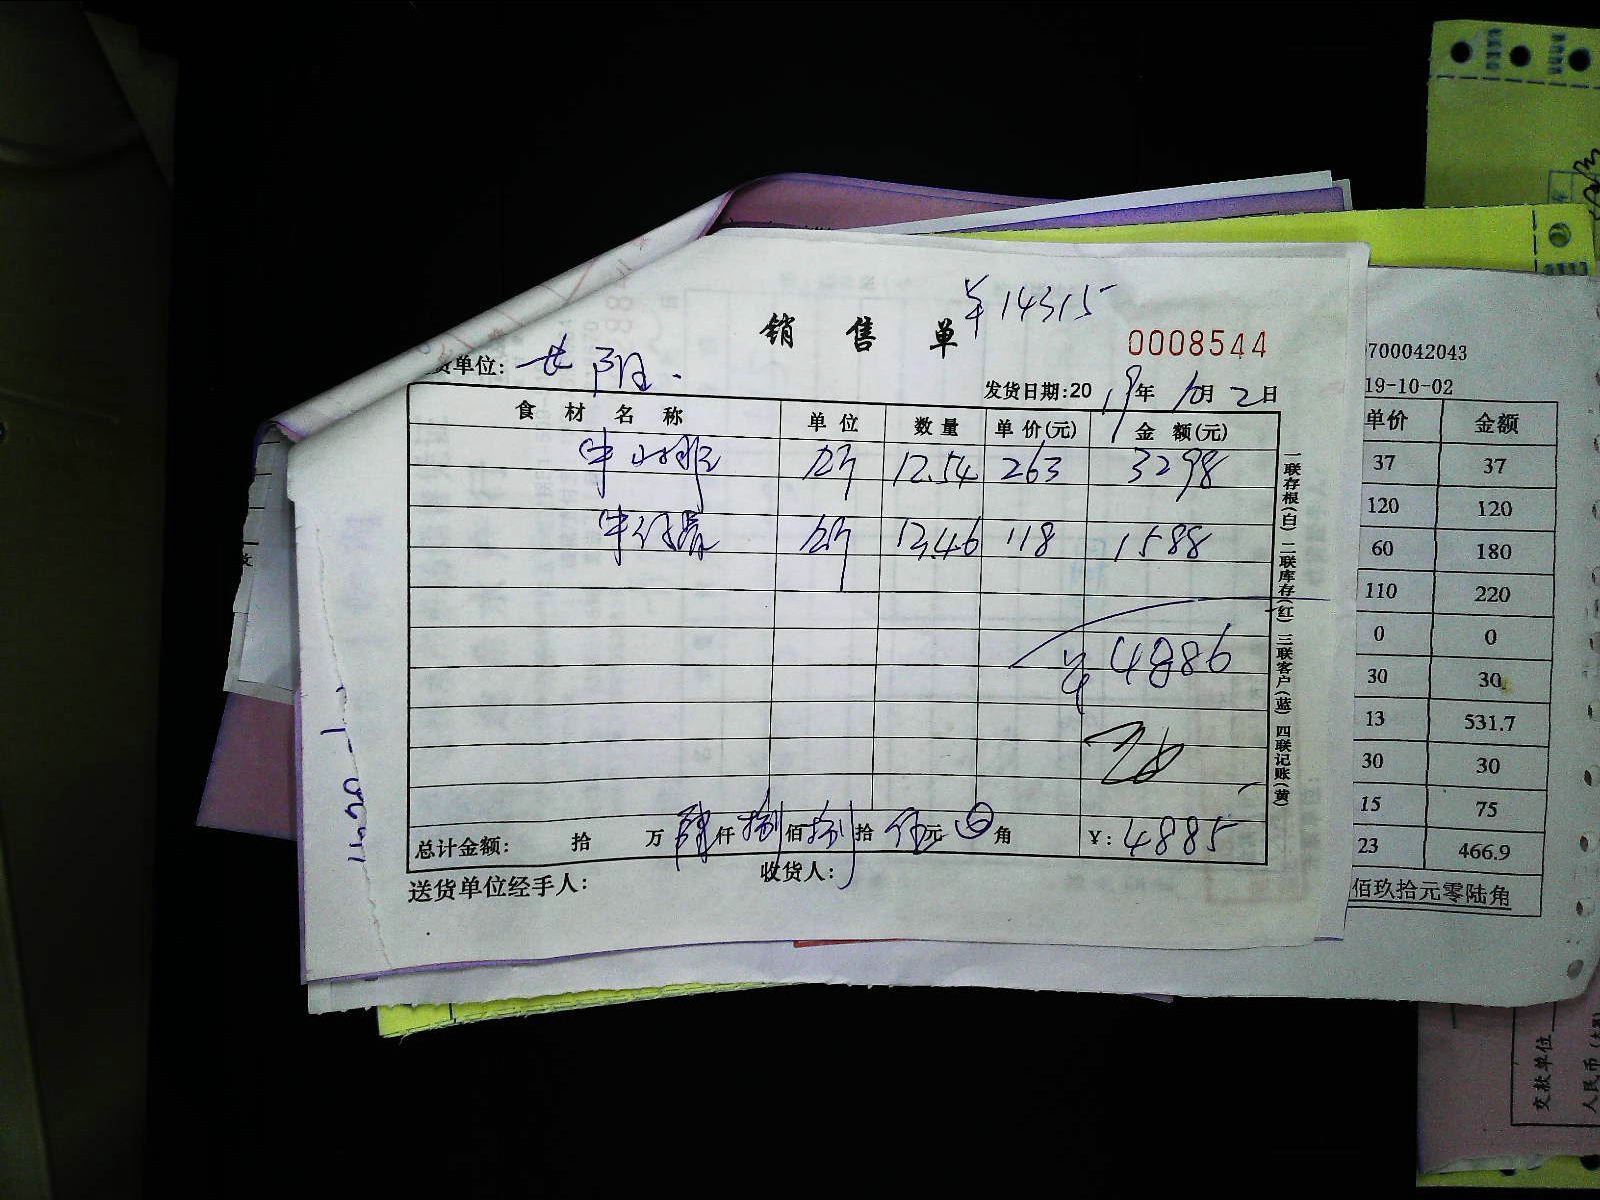 ¥14315
销售单
0008544
货单位: 长阳.
发货日期:2019年10月2日
食材名称 单位 数量 单价(元) 金额(元)
牛小排 斤 12.54 263 3298
斤 13.46 118 1588
¥4886
总计金额: 拾 万 肆仟捌佰捌拾伍元 角 ¥:4885
送货单位经手人: 收货人:
一联存根(白) 二联库存(红) 三联客户(蓝) 四联记账(黄)
700042043
19-10-02
单价 金额
37 37
120 120
60 180
110 220
0 0
30 30
13 531.7
30 30
15 75
23 466.9
佰玖拾元零陆角
交款单位
人民币